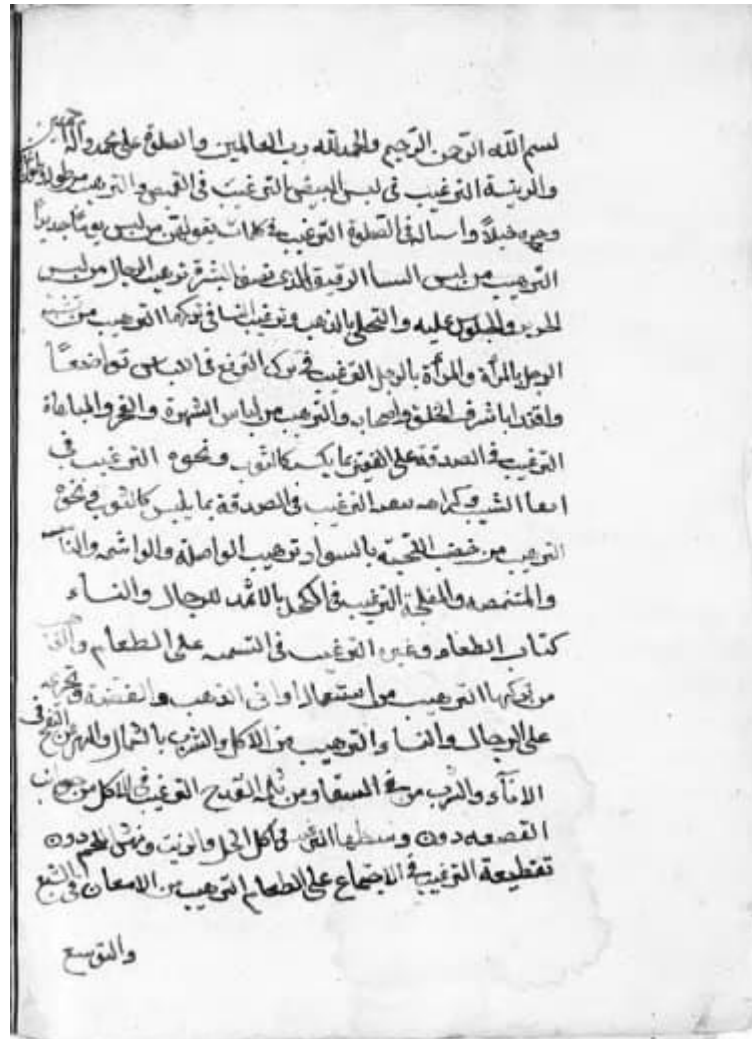 بسم الله الرحمن الرحيم والحمد لله رب العالمين والصلوة على محمد وآله أجمعين
والزينة الترغيب في لبس البيض الترغيب في القميص والترهيب من طوله وطول
وجره خيلاً واسباله في الصلوة الترغيب في كلمات يقولهن من لبس ثوباً جديداً
الترهيب من لبس النسا الرقيق الذي يصف البشرة ترهيب الرجال من لبس
الحرير والجلوس عليه والتحلي بالذهب وترغيب النسا في تركهما الترهيب من تشبه
الرجل بالمرأة والمرأة بالرجل الترغيب في ترك الترفع في اللباس تواضعاً
واقتدا باشرف الخلق واصحابه والترهيب من لباس الشهرة والفخر والمباهاة
الترغيب في الصدقة على الفقير بما يلبسه كالثوب ونحوه الترغيب في
ابقا الشيب وكراهه نتفه الترغيب في الصدقة بما يلبس كالثوب ونحوه
الترهيب من خضب اللحية بالسواد ترهيب الواصلة والواشمه
والمتنمصه والمفلجة الترغيب في الكحل بالاثمد للرجال والنساء
كتاب الطعام وغيره الترغيب في التسميه على الطعام والترهيب
من تركها الترهيب من استعمال اواني الذهب والفضة وتحريمه
على الرجال والنساء والترهيب من الاكل والشرب بالشمال والنهي عن النفخ في
الاناء والشرب من في السقا ومن ثلمة القدح الترغيب في الاكل من جوانب
القصعه دون وسطها الترغيب في اكل الخل والزيت ونهش اللحم دون
تقطيعه الترغيب في الاجتماع على الطعام الترهيب من الامعان في الشبع
والتوسع